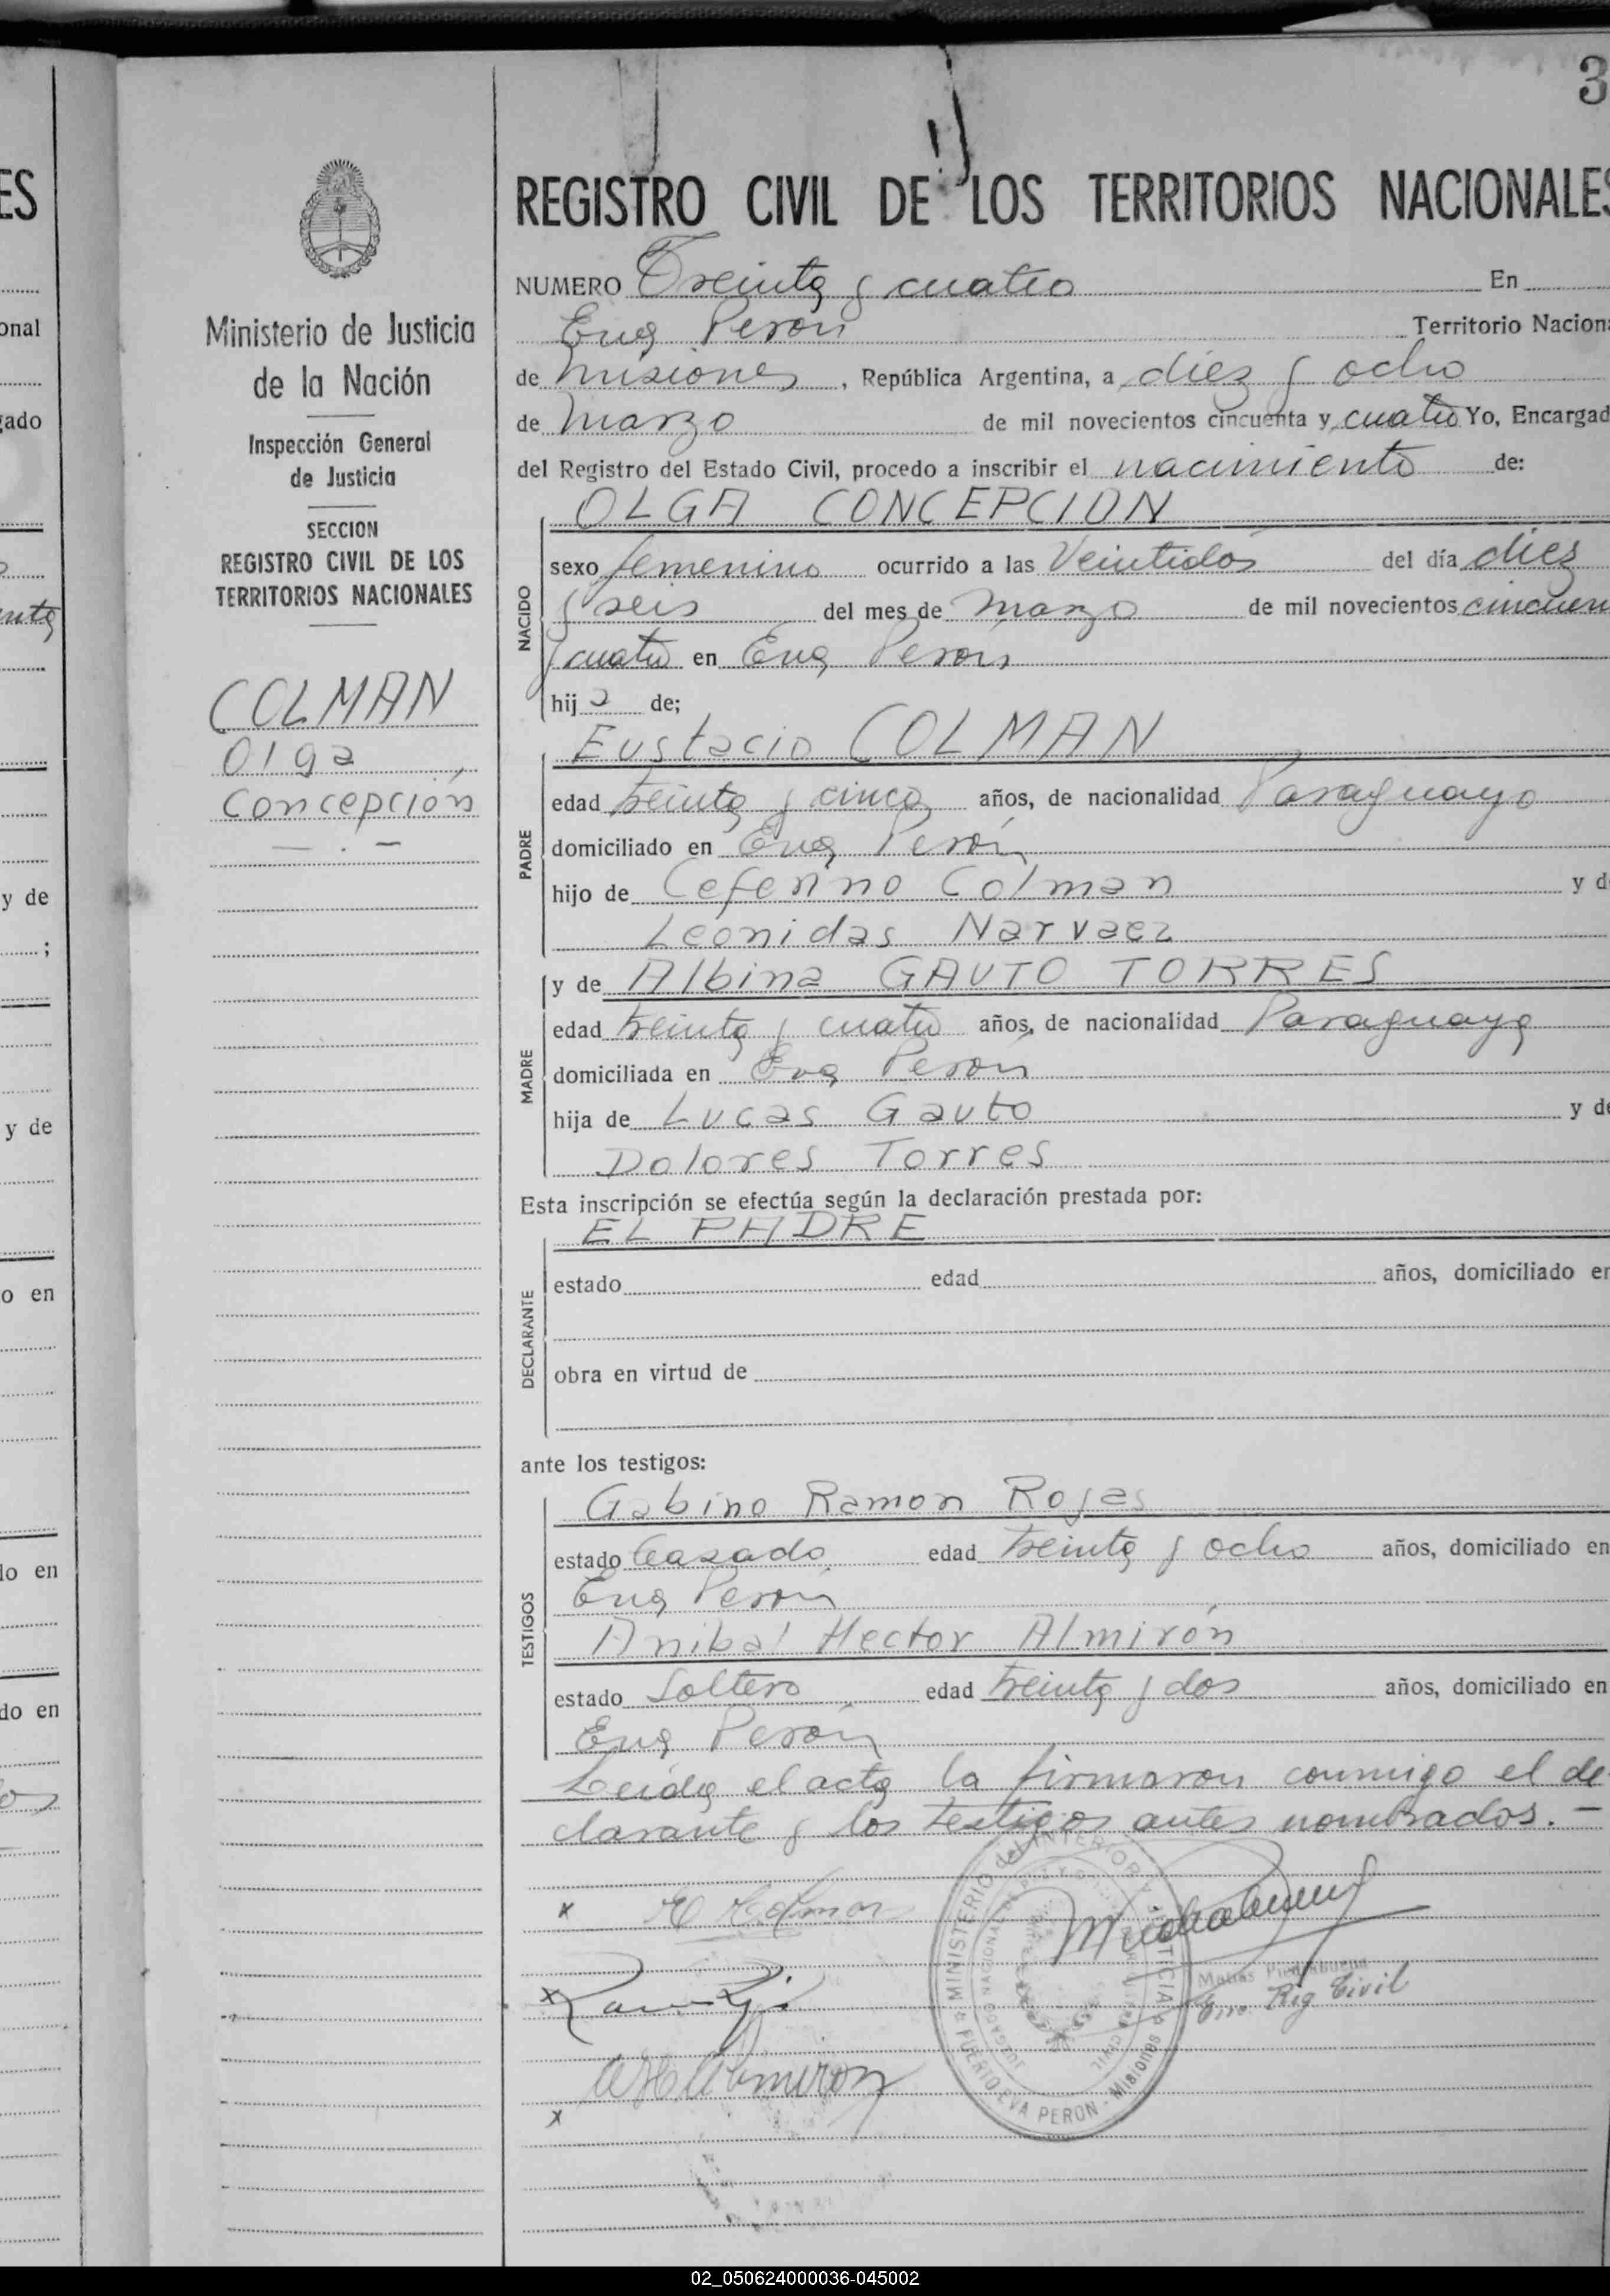 3
ES
onal
gado
y de
;
y de
o en
do en
do en
Ministerio de Justicia
de la Nación
Inspección General
de Justicia
SECCION
REGISTRO CIVIL DE LOS
TERRITORIOS NACIONALES
COLMAN
Olga
Concepción
REGISTRO CIVIL DE LOS TERRITORIOS NACIONALES
NUMERO Treinta y cuatro En
Eva Perón Territorio Naciona
de Misiones, República Argentina, a diez y ocho
de Marzo de mil novecientos cincuenta y cuatro Yo, Encargad
del Registro del Estado Civil, procedo a inscribir el nacimiento de:
OLGA CONCEPCION
NACIDO
sexo femenino ocurrido a las Veintidos del día diez
y seis del mes de Marzo de mil novecientos cincuen
y cuatro en Eva Perón
hij a de;
Eustacio COLMAN
PADRE
edad treinta y cinco años, de nacionalidad Paraguayo
domiciliado en Eva Perón
hijo de Ceferino Colman y d
Leonidas Narvaez
y de Albina GAUTO TORRES
MADRE
edad treinta y cuatro años, de nacionalidad Paraguaya
domiciliada en Eva Perón
hija de Lucas Gauto y de
Dolores Torres
Esta inscripción se efectúa según la declaración prestada por:
EL PADRE
DECLARANTE
estado edad años, domiciliado en
obra en virtud de
ante los testigos:
Gabino Ramon Rojas
TESTIGOS
estado Casado edad treinta y ocho años, domiciliado en
Eva Perón
Anibal Hector Almirón
estado Soltero edad treinta y dos años, domiciliado en
Eva Perón
Leida el acta la firmaron conmigo el de-
clarante y los testigos antes nombrados. —
x E Colman
MINISTERIO del INTERIOR Y JUSTICIA
PUERTO EVA PERON - Misiones
Matias Piedrabuena
Enc. Rig Civil
x
A H Almiron
x
02_050624000036-045002